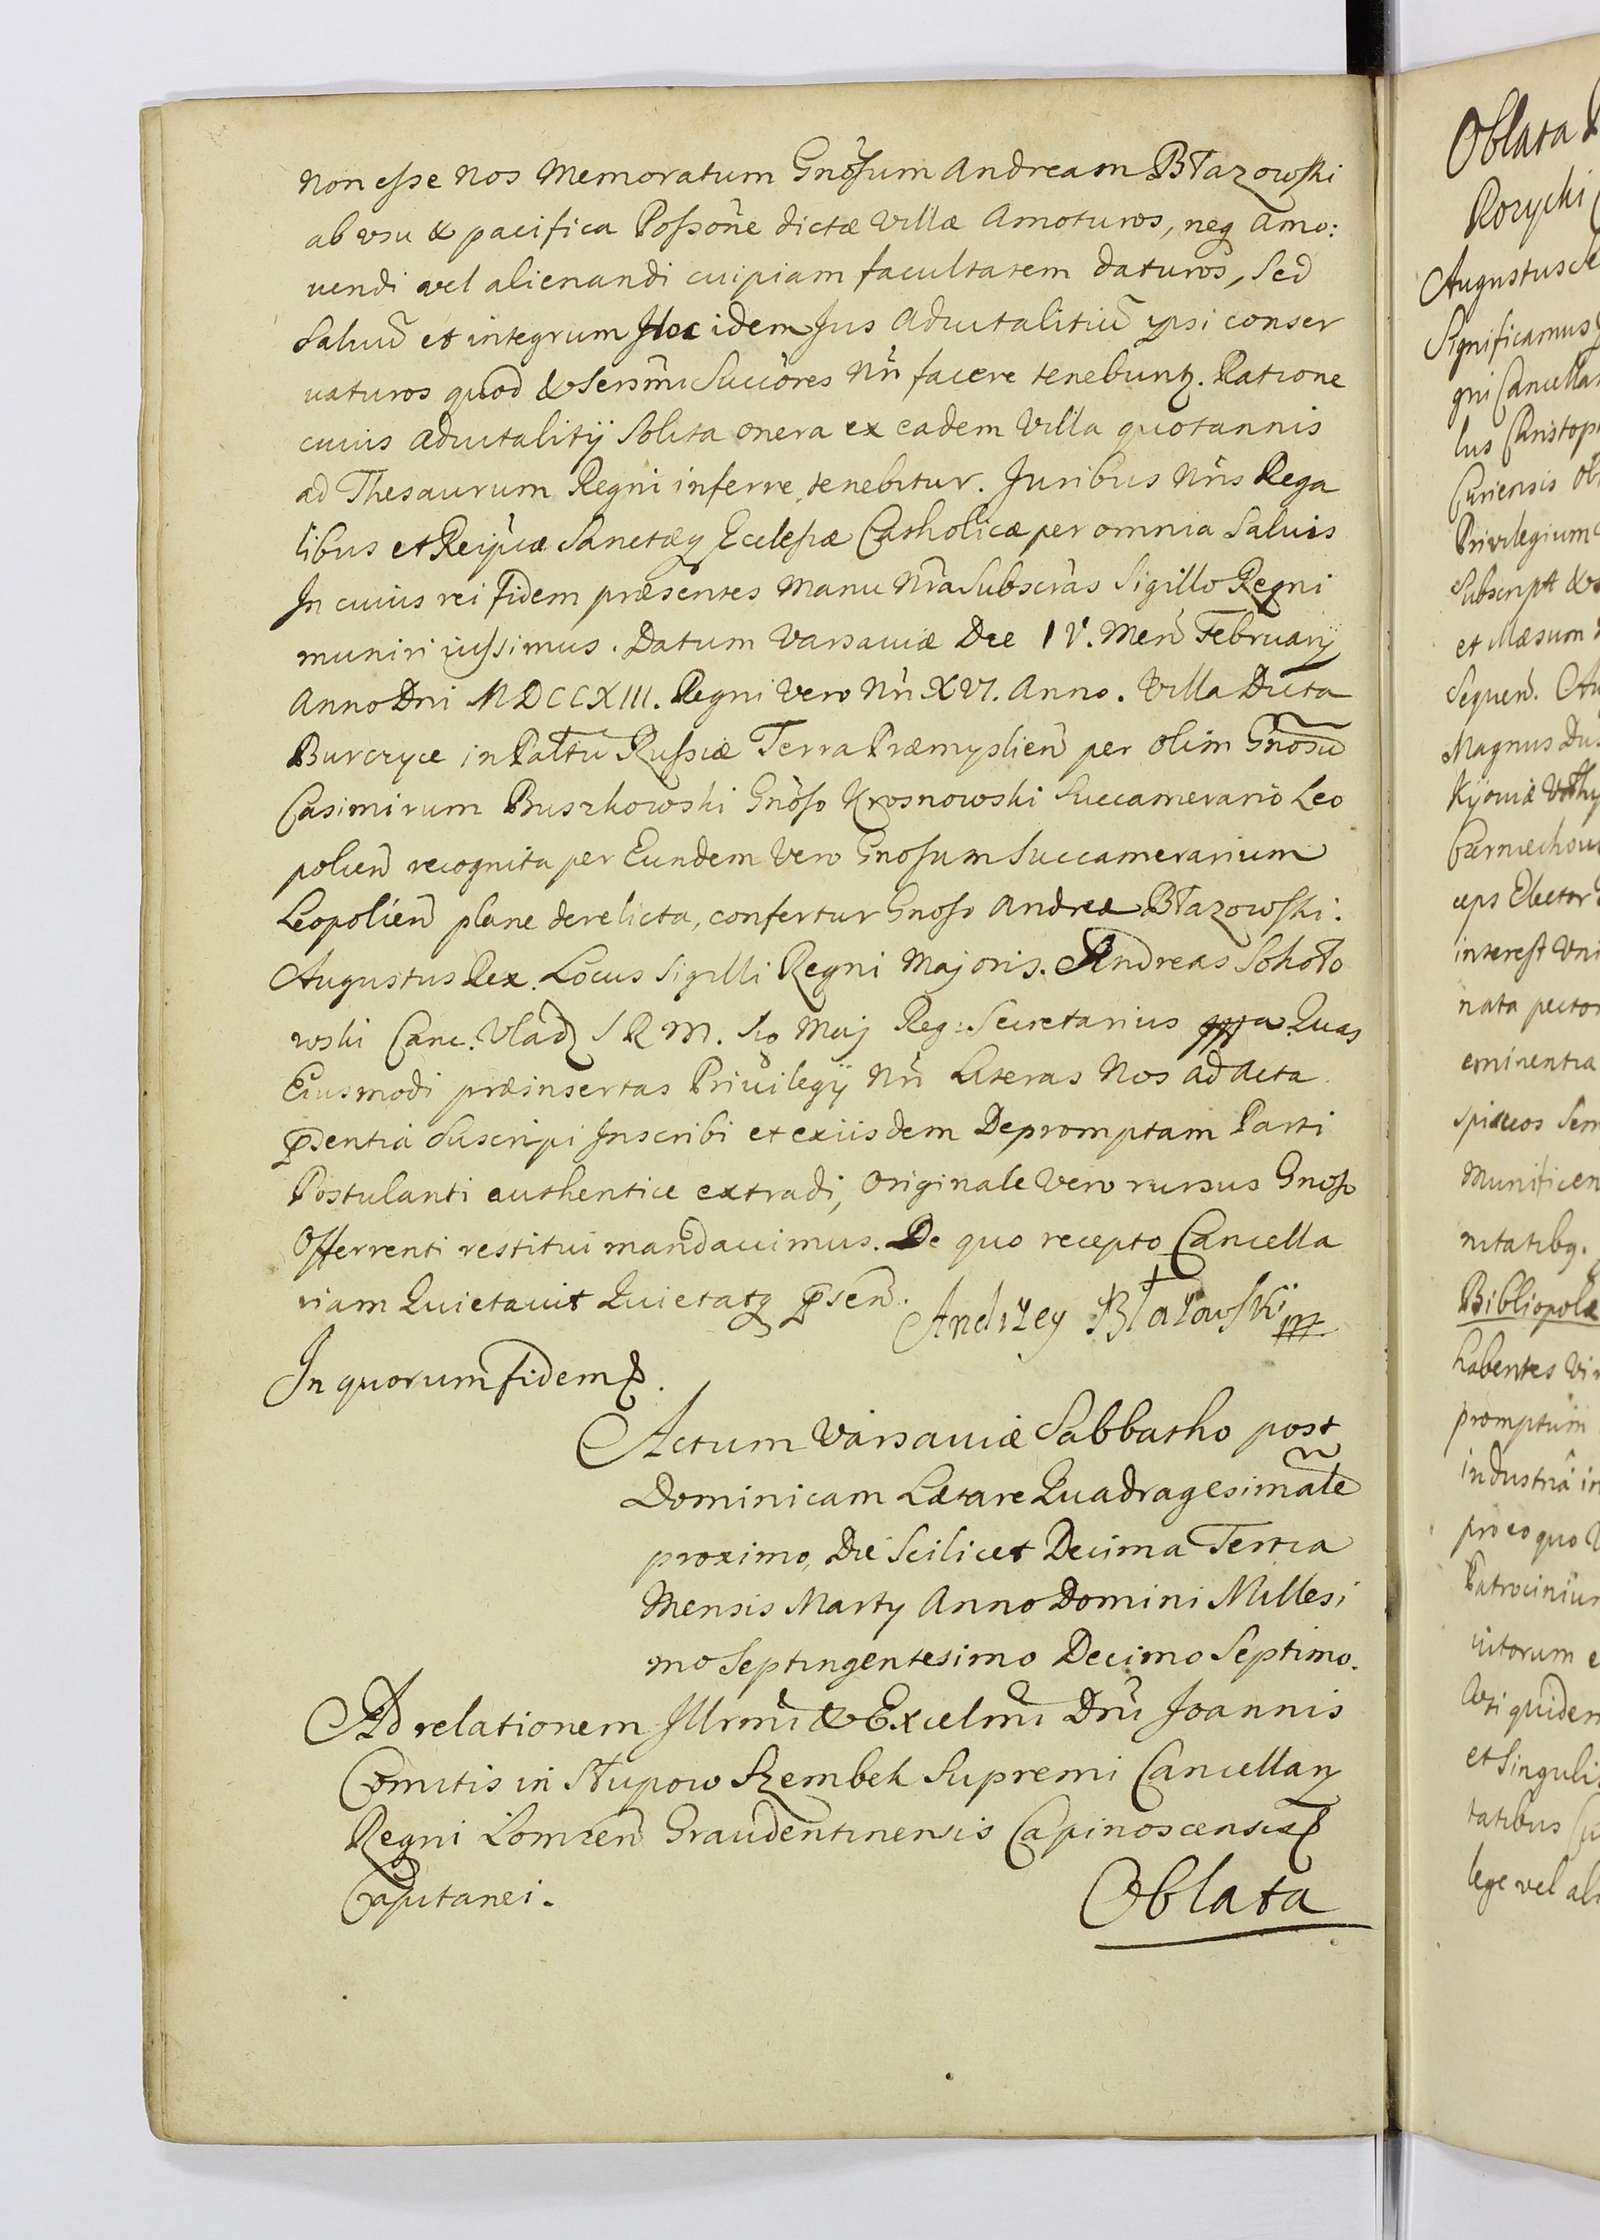 non esse nos Memoratum Gnõsum Andream Błazowski
ab usu & pacifica Possõne dictæ Villæ Amoturos, neq Amo:
uendi vel alienandi cuipiam facultatem daturos, Sed
Saluũ et integrum Hoc idem Jus Aduitalitiũ ypsi conser
uaturos quod & Sersm̃i Succõres Nr̃i facere tenebuntꝫ. Ratione
cuius Aduitalitÿ Solita onera ex eadem Villa quotannis
ad Thesaurum Regni inferre tenebitur. Juribus Nr̃is Rega
libus et Reipu͠æ Sanctæq Ecclesiæ Catholicæ per omnia Saluis
In cuius rei fidem præsentes Manu Nr̃a Subscr̃as Sigillo Regni
muniri iussimus. Datum Varsauiæ Die IV. Men̄ Februarÿ
Anno Dni MDCCXIII. Regni Vero Nr̃i XVI. Anno. Villa Dicta
Burczyce in Pałtũ Russiæ Terra Præmyslien̄ per olim Gnõsũ
Casimirum Buszkowski Gnõso Krosnowski Succamerario Leo
polien̄ recognita per Eundem Vero Gnosum Succamerarium
Leopolien̄ plane derelicta, confertur Gnoso Andreæ Błazowski.
Augustus Rex. Locus Sigilli Regni Majoris. Andreas Sokoło
wski Canc. Vlad S R M. Sig Maj Reg: Secretarius mppa. Quas
Eiusmodi præinsertas Priuilegÿ Nr̃i Literas Nos ad Acta
p̃sentia Suscripi Inscribi et exiisdem Depromptam Parti
Postulanti authentice extradi, Originale Vero rursus Gnoso
Offerrenti restitui mandauimus. De quo recepto Cancella
riam Quietauit Quietatq p̃sen̄.
Andrzey Błazowski mp
In quorum fidem &.
Actum Varsauiæ Sabbatho post
Dominicam Lætare Quadragesimalẽ
proximo, Die Scilicet Decima Tertia
Mensis Martÿ Anno Domini Millesi
mo Septingentesimo Decimo Septimo.
Ad relationem Illr̃mi & Excelm̃i Dñi Joannis
Comitis in Słupow Szembek Supremi Cancellarÿ
Regni Lomzen̄ Graudentinensis Capinoscensisq
Capitanei.
Oblata
Oblata
Rozycki
Augustus
Significamus
gni Cancella
lus Christop
Curiensis
Priuilegium
Subscript
et Mæsum
Sequen̄.
Magnus
Kÿouiæ
Czerniechou
ceps Elector
interest Vni
nata pector
eminentia
Munificen
nitatibq.
Bibliopolæ
habentes
promptum
industriâ
pro eo quo
Patrociniu
uitorum
Uti quidem
et Singuli
tatibus
lege vel